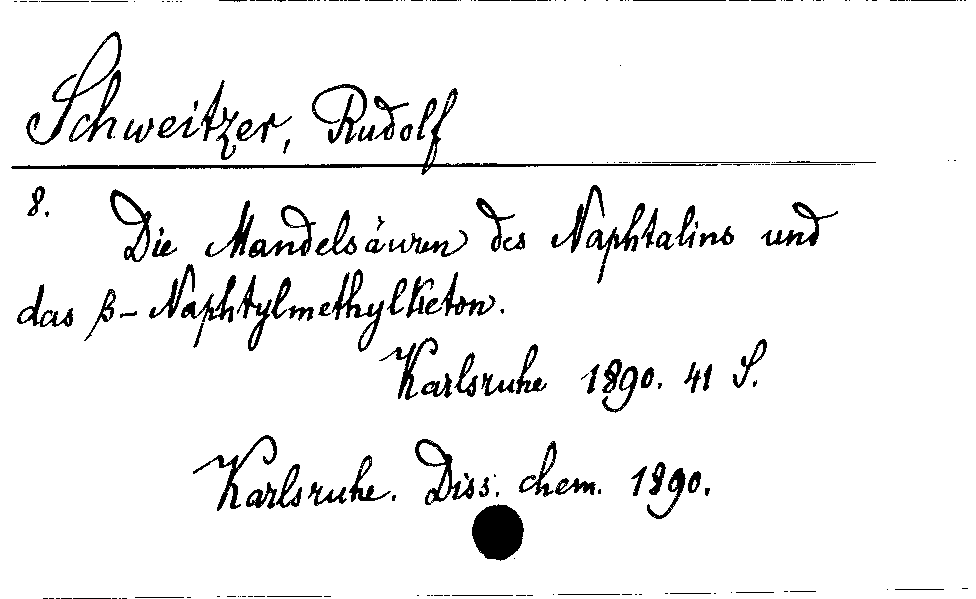 Schweitzer, Rudolf
8. Die Mandelsäuren des Naphtalins und
das β-Naphtylmethylketon.
Karlsruhe 1890. 41 S.
Karlsruhe. Diss. chem. 1890.